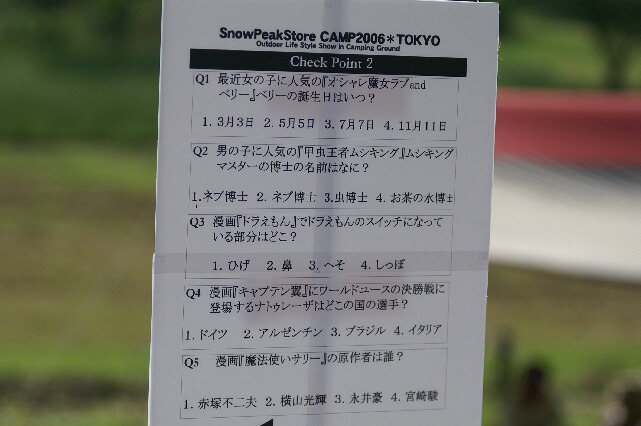 SnowPeakStore CAMP2006*TOKYO
Outdoor Life Style Show in Camping Ground
Check Point 2
Q1 最近女の子に人気の『オシャレ魔女ラブand
ベリー』ベリーの誕生日はいつ？
1. 3月3日 2. 5月5日 3. 7月7日 4. 11月11日
Q2 男の子に人気の『甲虫王者ムシキング』ムシキング
マスターの博士の名前はなに？
1. ネブ博士 2. ネブ博士 3. 虫博士 4. お茶の水博士
Q3 漫画『ドラえもん』でドラえもんのスイッチになって
いる部分はどこ？
1. ひげ 2. 鼻 3. へそ 4. しっぽ
Q4 漫画『キャプテン翼』にワールドユースの決勝戦に
登場するナトゥレーザはどこの国の選手？
1. ドイツ 2. アルゼンチン 3. ブラジル 4. イタリア
Q5 漫画『魔法使いサリー』の原作者は誰？
1. 赤塚不二夫 2. 横山光輝 3. 永井豪 4. 宮崎駿